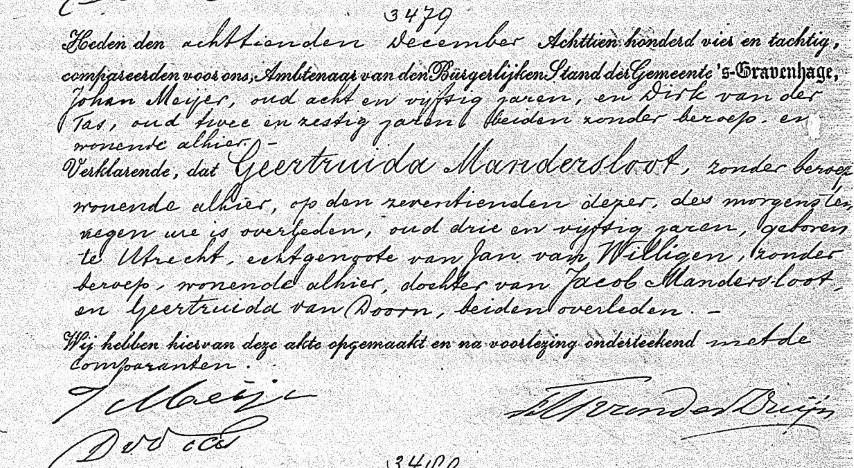 3479
Heden den achttienden December Achttien honderd vier en tachtig,
compareerden voor ons, Ambtenaar van den Burgerlijken Stand der Gemeente 's-Gravenhage,
Johan Meijer, oud acht en vijftig jaren, en Dirk van der
Tas, oud twee en zestig jaren, beiden zonder beroep en
wonende alhier. —
Verklarende, dat Geertruida Mandersloot, zonder beroep
wonende alhier, op den zeventienden dezer, des morgens ten
negen ure is overleden, oud drie en vijftig jaren, geboren
te Utrecht, echtgenoote van Jan van Willigen, zonder
beroep, wonende alhier, dochter van Jacob Mandersloot,
en Geertruida van Doorn, beiden overleden. —
Wij hebben hiervan deze akte opgemaakt en na voorlezing onderteekend met de
comparanten.
J Meijer
D v d Tas
3480